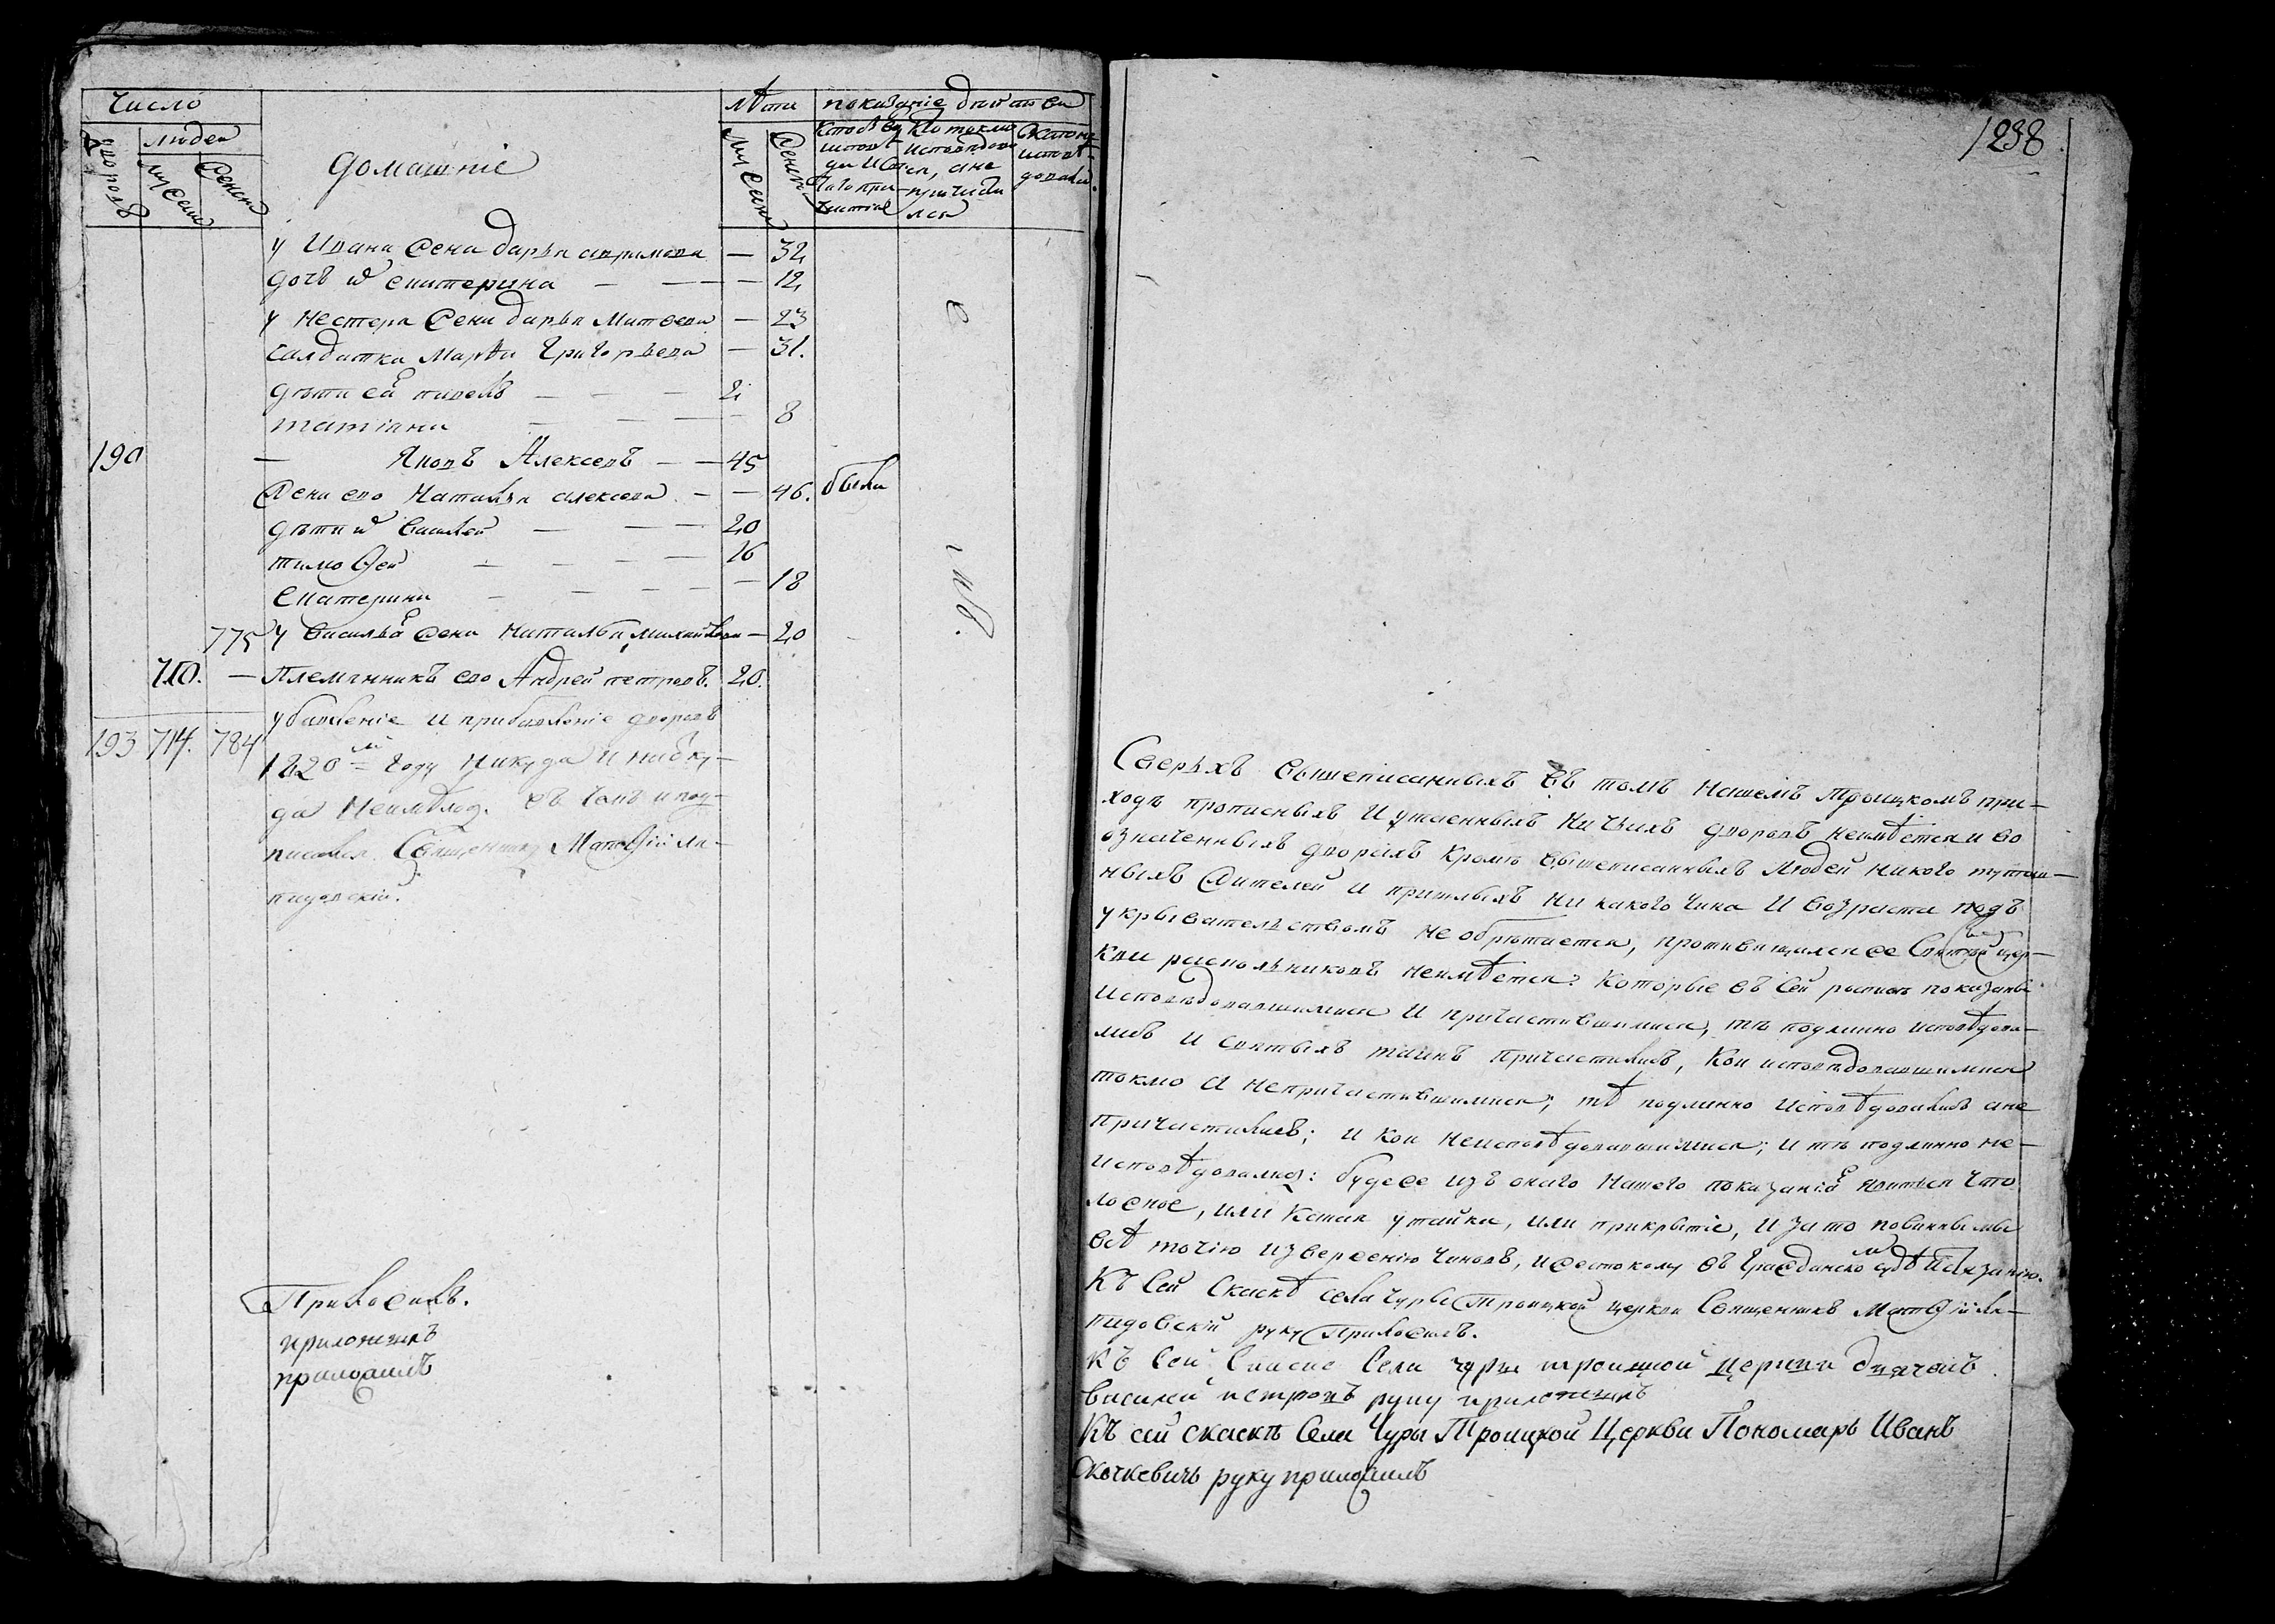 Число
людей
дворовъ
муска
женска
домашніе
лѣта
муска
женска
показаніе дѣйства
Кто былъ у исповѣди и Святаго причастія
Кто токмо исповѣдовался, а не причастился
Кто не исповѣдовался
у Ивана жена дарья аврамова — 32
дочь их екатерина — 12
у нестера жена дарья Матвеева — 23
салдатка марѳа Григорьева — 31.
дѣти ея павелъ — 2
татіана — 8
190 — Яковъ Алексеевъ — 45
жена ево Наталья алексеева — 46. были
дѣти их василей — 20
тимоѳей — 16
екатерина — 18
775 у василья жена Наталья михайлова — 20
710. — Племянникъ ево Андрей петровъ. 20.
убавленіе и прибавленіе дворовъ
193 714. 784
1820м году никуда и ниотку-
да Неимѣлось. въ чемъ и под-
писался Священникъ Матѳій Ла-
пидовскій.
Приложилъ.
приложилъ
приложилъ
238
Сверьхъ вышеписанныхъ въ томъ нашемъ Троицкомъ при-
ходѣ прописныхъ и утаенныхъ ни чьихъ дворовъ неимѣется и во
означенныхъ дворахъ кромѣ вышеписанныхъ людей никого тутош-
ныхъ жителей и пришлыхъ ни какого чина и возраста подъ
укрывателствомъ не обрѣтается, противящихся же Святей цер-
кви раскольниковъ неимѣется: Которые въ сей росписи показаны
исповѣдовавшимися и причастившимися, тѣ подлинно исповѣдова-
лись и святыхъ таинъ причастились, Кои исповѣдовавшимися
токмо а непричастившимися; тѣ подлинно исповѣдовались ане
причастились; и Кои неисповѣдовавшимися; и тѣ подлинно не-
исповѣдовались: буде же изъ онаго нашего показанія явится что
ложное, или какая утайка, или прикрытіе, и за то повинны мы
всѣ точію извержению чиновъ, и жестокому въ Гражданском судѣ истязанію.
Къ сей скаскѣ села Чуры Троицкой церкви Священникъ Матѳій Ла-
пидовскій руку Приложилъ.
Къ сей скаске села чуры троицкой церкви дьячокъ
василей петровъ руку приложилъ
Къ сей скаскѣ села Чуры Троицкой Церкви Пономарь Иванъ
руку приложилъ